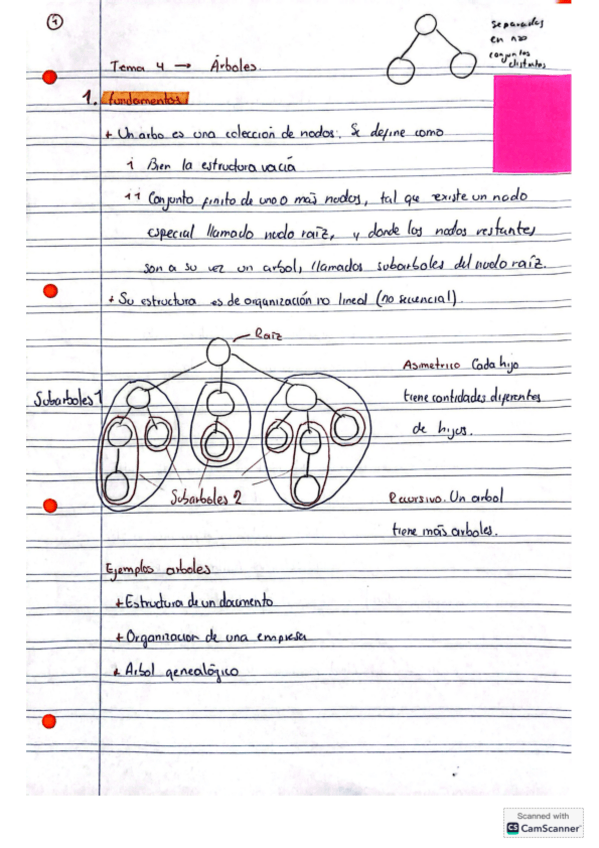 1
Separados
en n≥0
conjuntos
distintos
Tema 4 → Árboles.
1. fundamentos.
+ Un arbo es una colección de nodos. Se define como
i Bien la estructura vacía
ii Conjunto finito de uno o más nodos, tal que existe un nodo
especial llamado nodo raíz, y donde los nodos restantes
son a su vez un arbol, llamados subarboles del nodo raíz.
+ Su estructura es de organización no lineal (no secuencial).
Raíz
Asimetrico Cada hijo
tiene cantidades diferentes
de hijos.
Subarboles 1
Subarboles 2
Recursivo. Un arbol
tiene más arboles.
Ejemplos arboles
+ Estructura de un documento
+ Organizacion de una empresa
+ Arbol genealógico
Scanned with
CS CamScanner